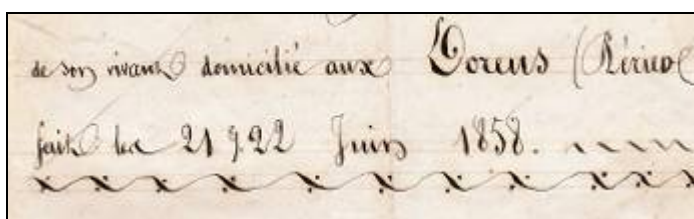 de son vivant domicilié aux Lorens (Péricol
fait les 21 & 22 Juin 1858.